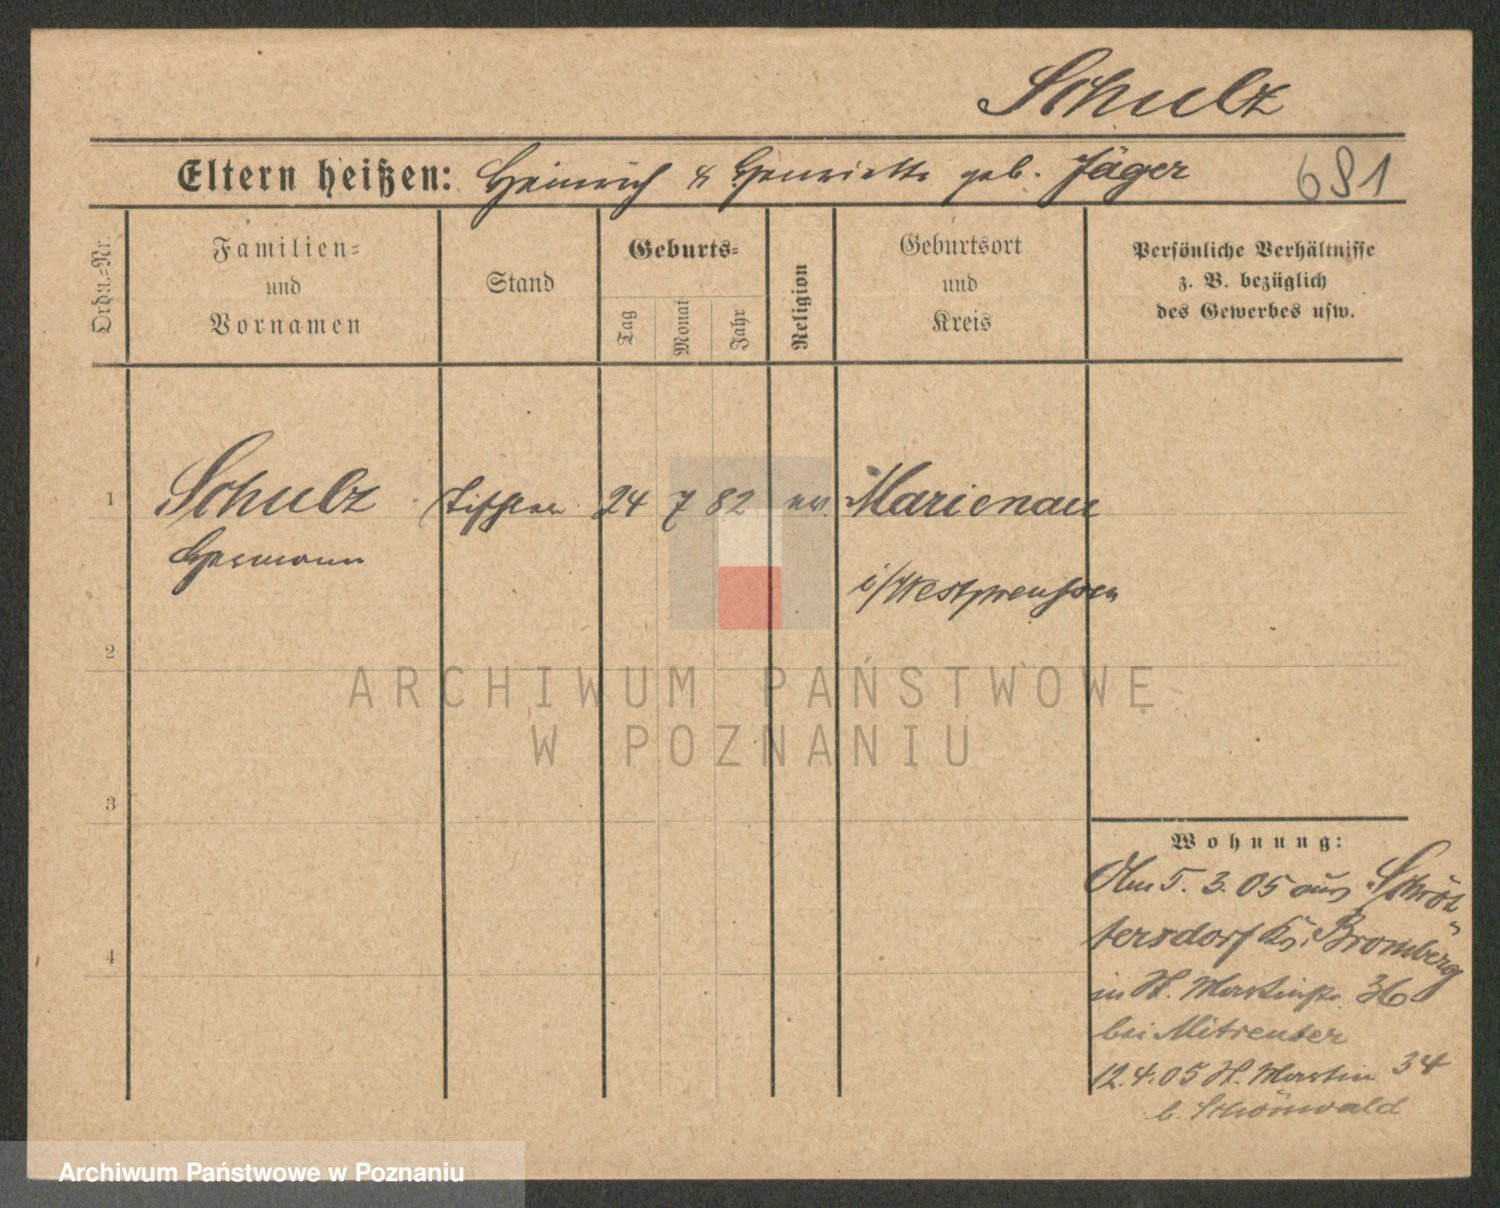 Schulz
Eltern heißen: Heinrich & Henriette geb. Jäger
681
Ordn.=Nr.
Familien=
und
Vornamen
Stand
Geburts=
Tag
Monat
Jahr
Religion
Geburtsort
und
Kreis
Persönliche Verhältnisse
z. B. bezüglich
des Gewerbes usw.
1
Schulz Tischler 24 7 82 ev. Marienau
Hermann
i/Westpreußen
2
ARCHIWUM PAŃSTWOWE
W POZNANIU
3
Wohnung:
Am 5. 3. 05 aus Schröt=
tersdorf Kr. Bromberg
4
in St. Martinstr. 36
bei
12.4.05 St. Martin 34
b. Schönwald
Archiwum Państwowe w Poznaniu